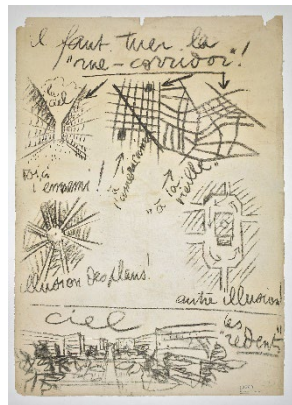 il faut tuer la
"rue-corridor"!
le
ciel
voici
l'ennemi!
à l'américaine
"à la
vieille"
illusion des plans!
autre illusion!
ciel
les
"redents"